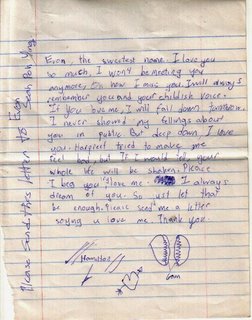 Please send this letter to Evan
Evan, the sweetest name. I love you
so much. I won't be meeting you
anymore. On now I miss you. I will always
remember you and your childish voice.
If you love me, I will fall down tomorrow.
I never showed my fillings about
you in public But deep down, I love
you. Harpreet tried to make me
feel bad, but If I would tell, your
whole life will be shaken. Please
I beg you love me. I always
dream of you. So just let that
be enough. Please send me a letter
saying u love me. Thank you
Hamilton